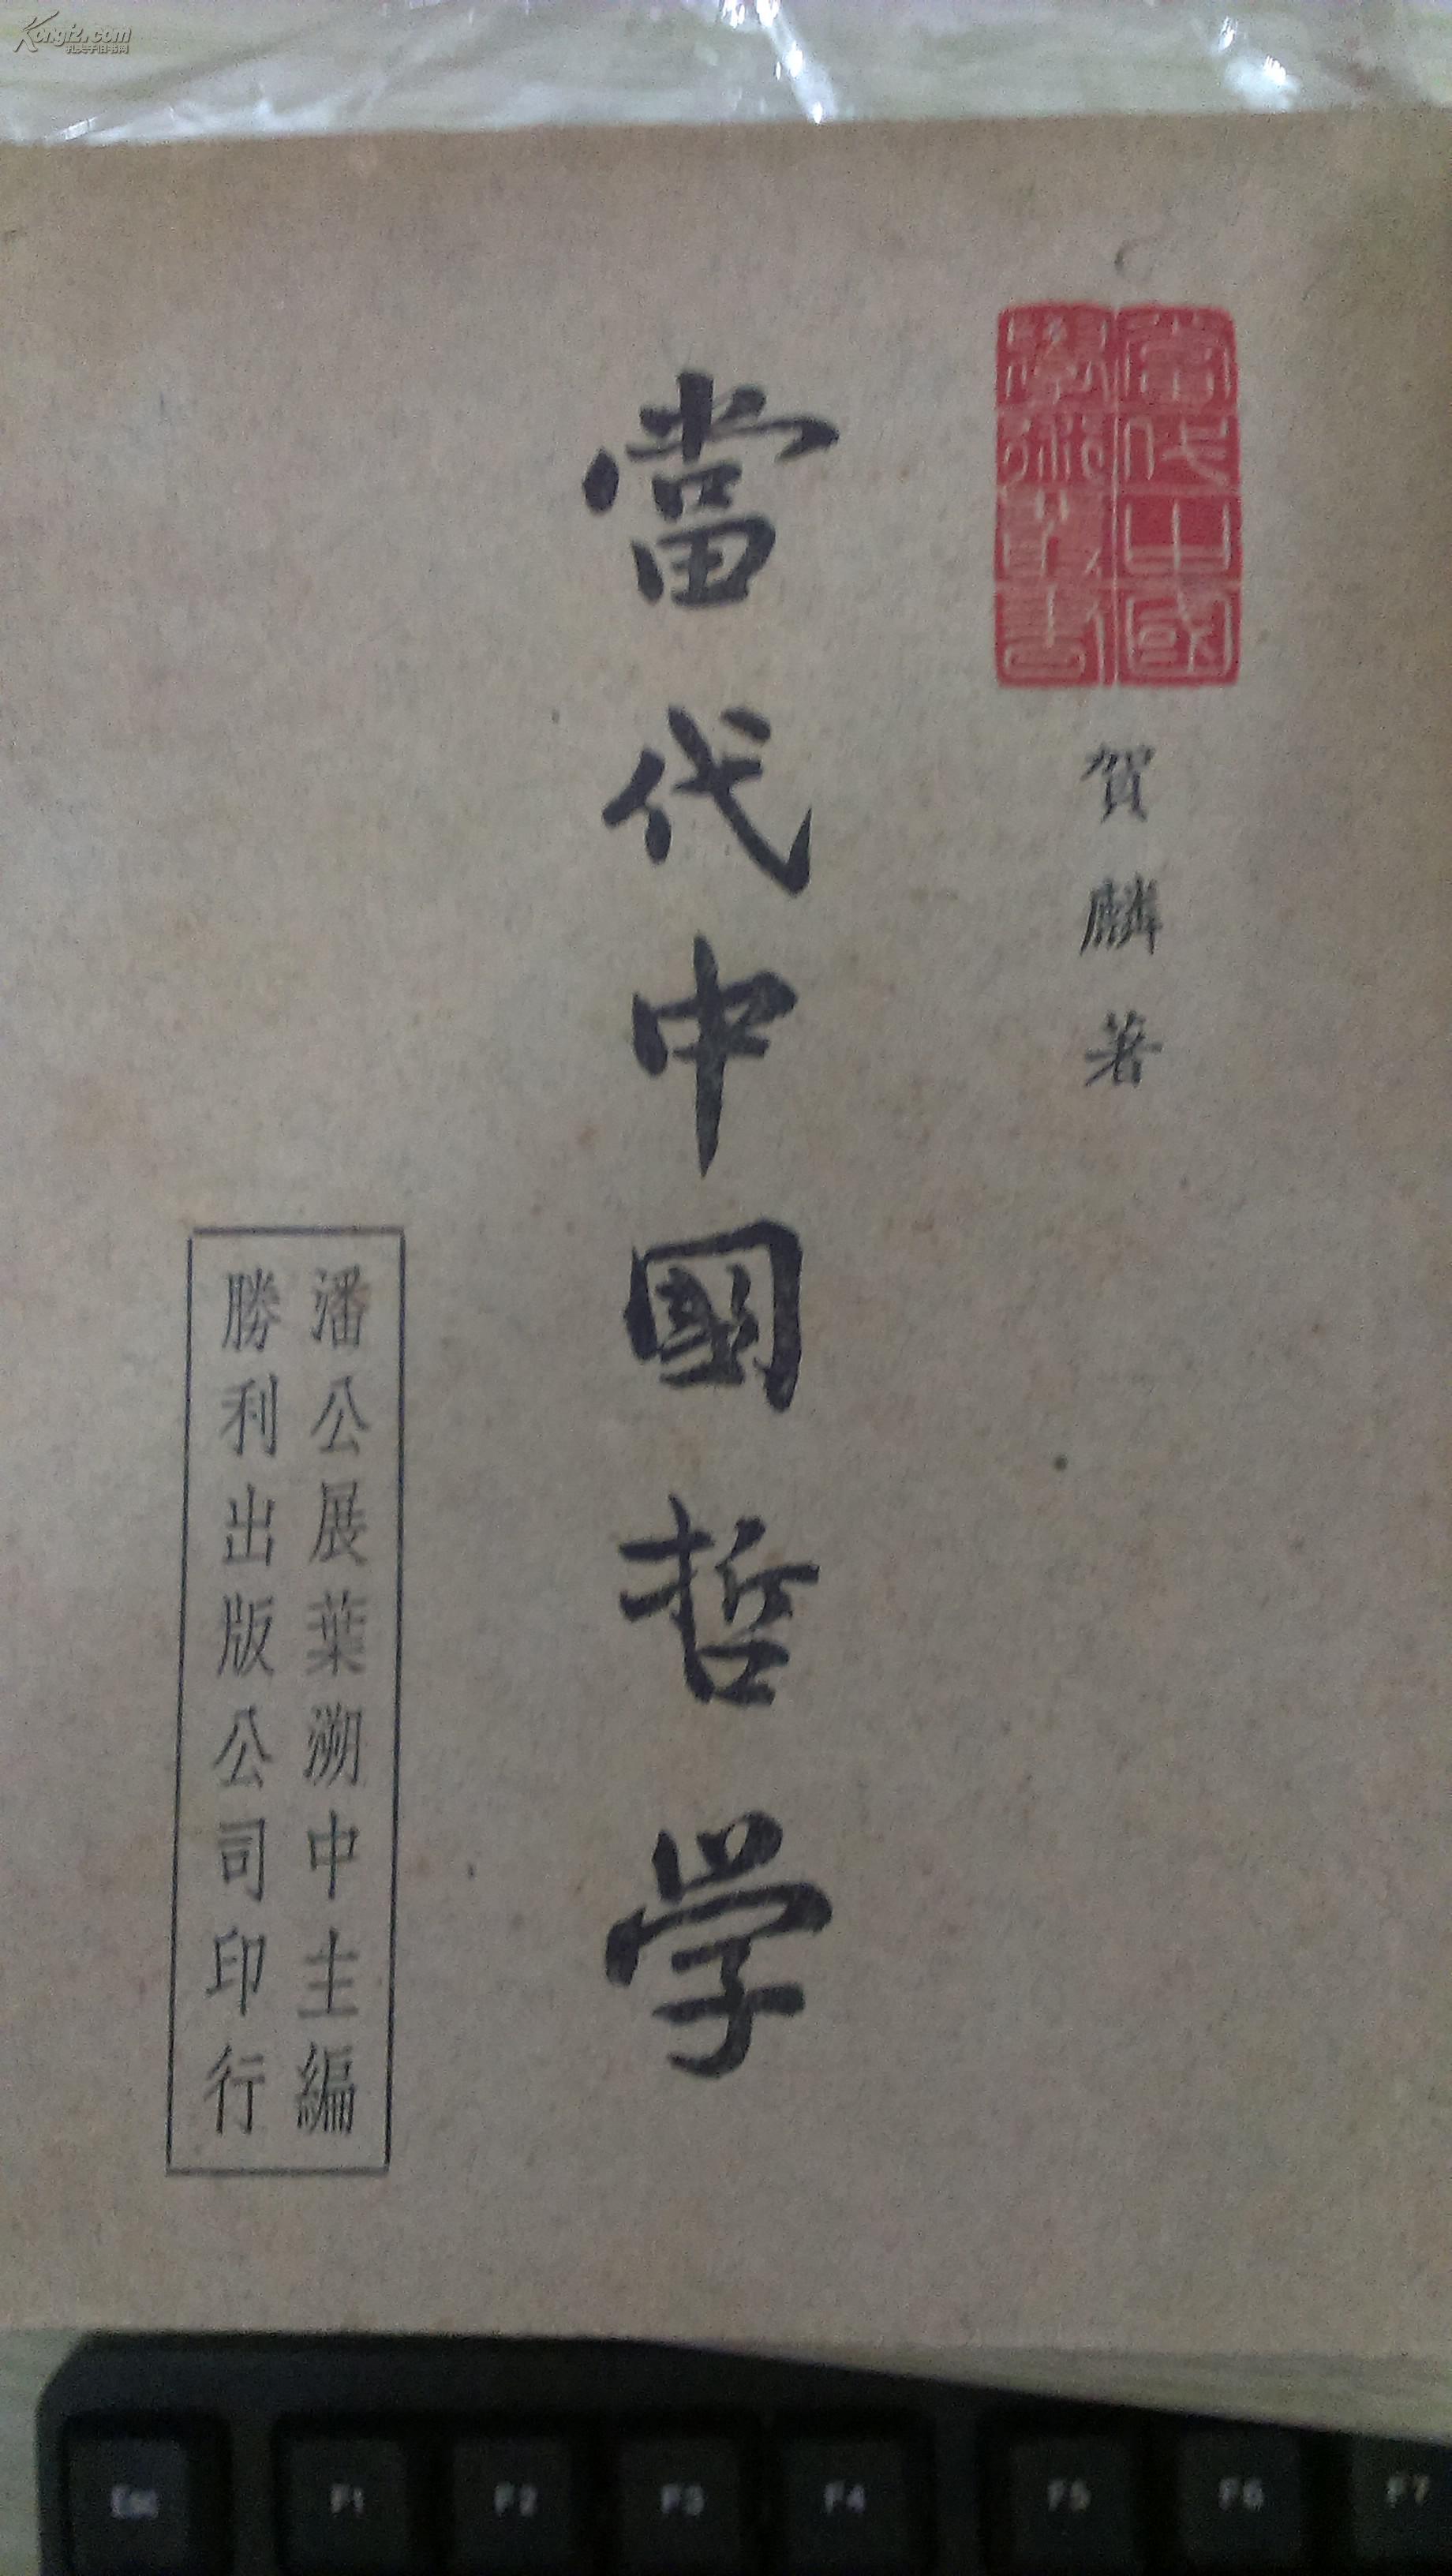 Kongfz.com
孔夫子旧书网
當代中國
學術叢書
賀麟著
當代中國哲学
潘公展葉溯中主編
勝利出版公司印行
Esc F1 F2 F3 F4 F5 F6 F7